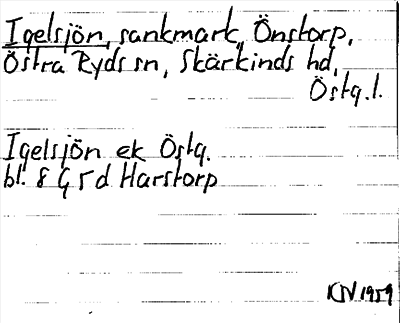 Igelsjön, sankmark, Önstorp,
Östra Ryds sn, Skärkinds hd,
Östg.l.
Igelsjön ek Östg.
bl. 8 G 5 d Harstorp
KJV 1959